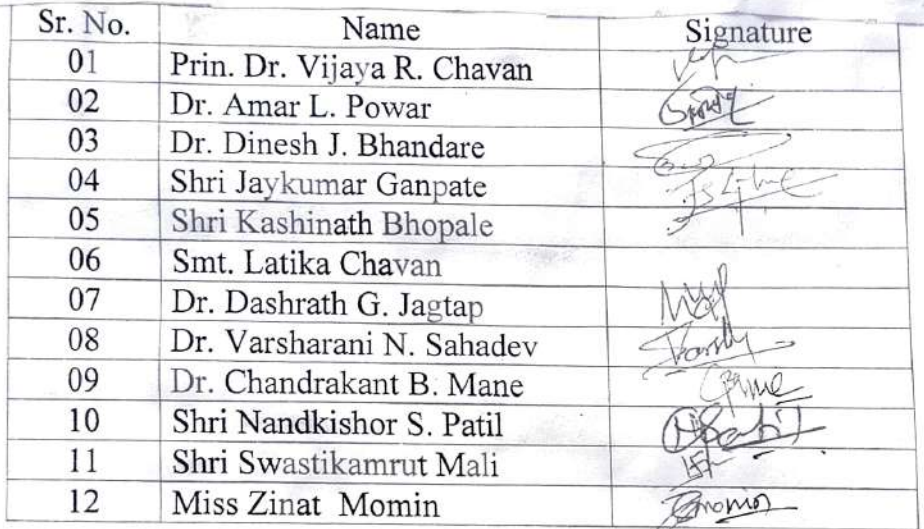 Sr. No. Name Signature
01 Prin. Dr. Vijaya R. Chavan
02 Dr. Amar L. Powar
03 Dr. Dinesh J. Bhandare
04 Shri Jaykumar Ganpate
05 Shri Kashinath Bhopale
06 Smt. Latika Chavan
07 Dr. Dashrath G. Jagtap
08 Dr. Varsharani N. Sahadev
09 Dr. Chandrakant B. Mane
10 Shri Nandkishor S. Patil
11 Shri Swastikamrut Mali
12 Miss Zinat Momin